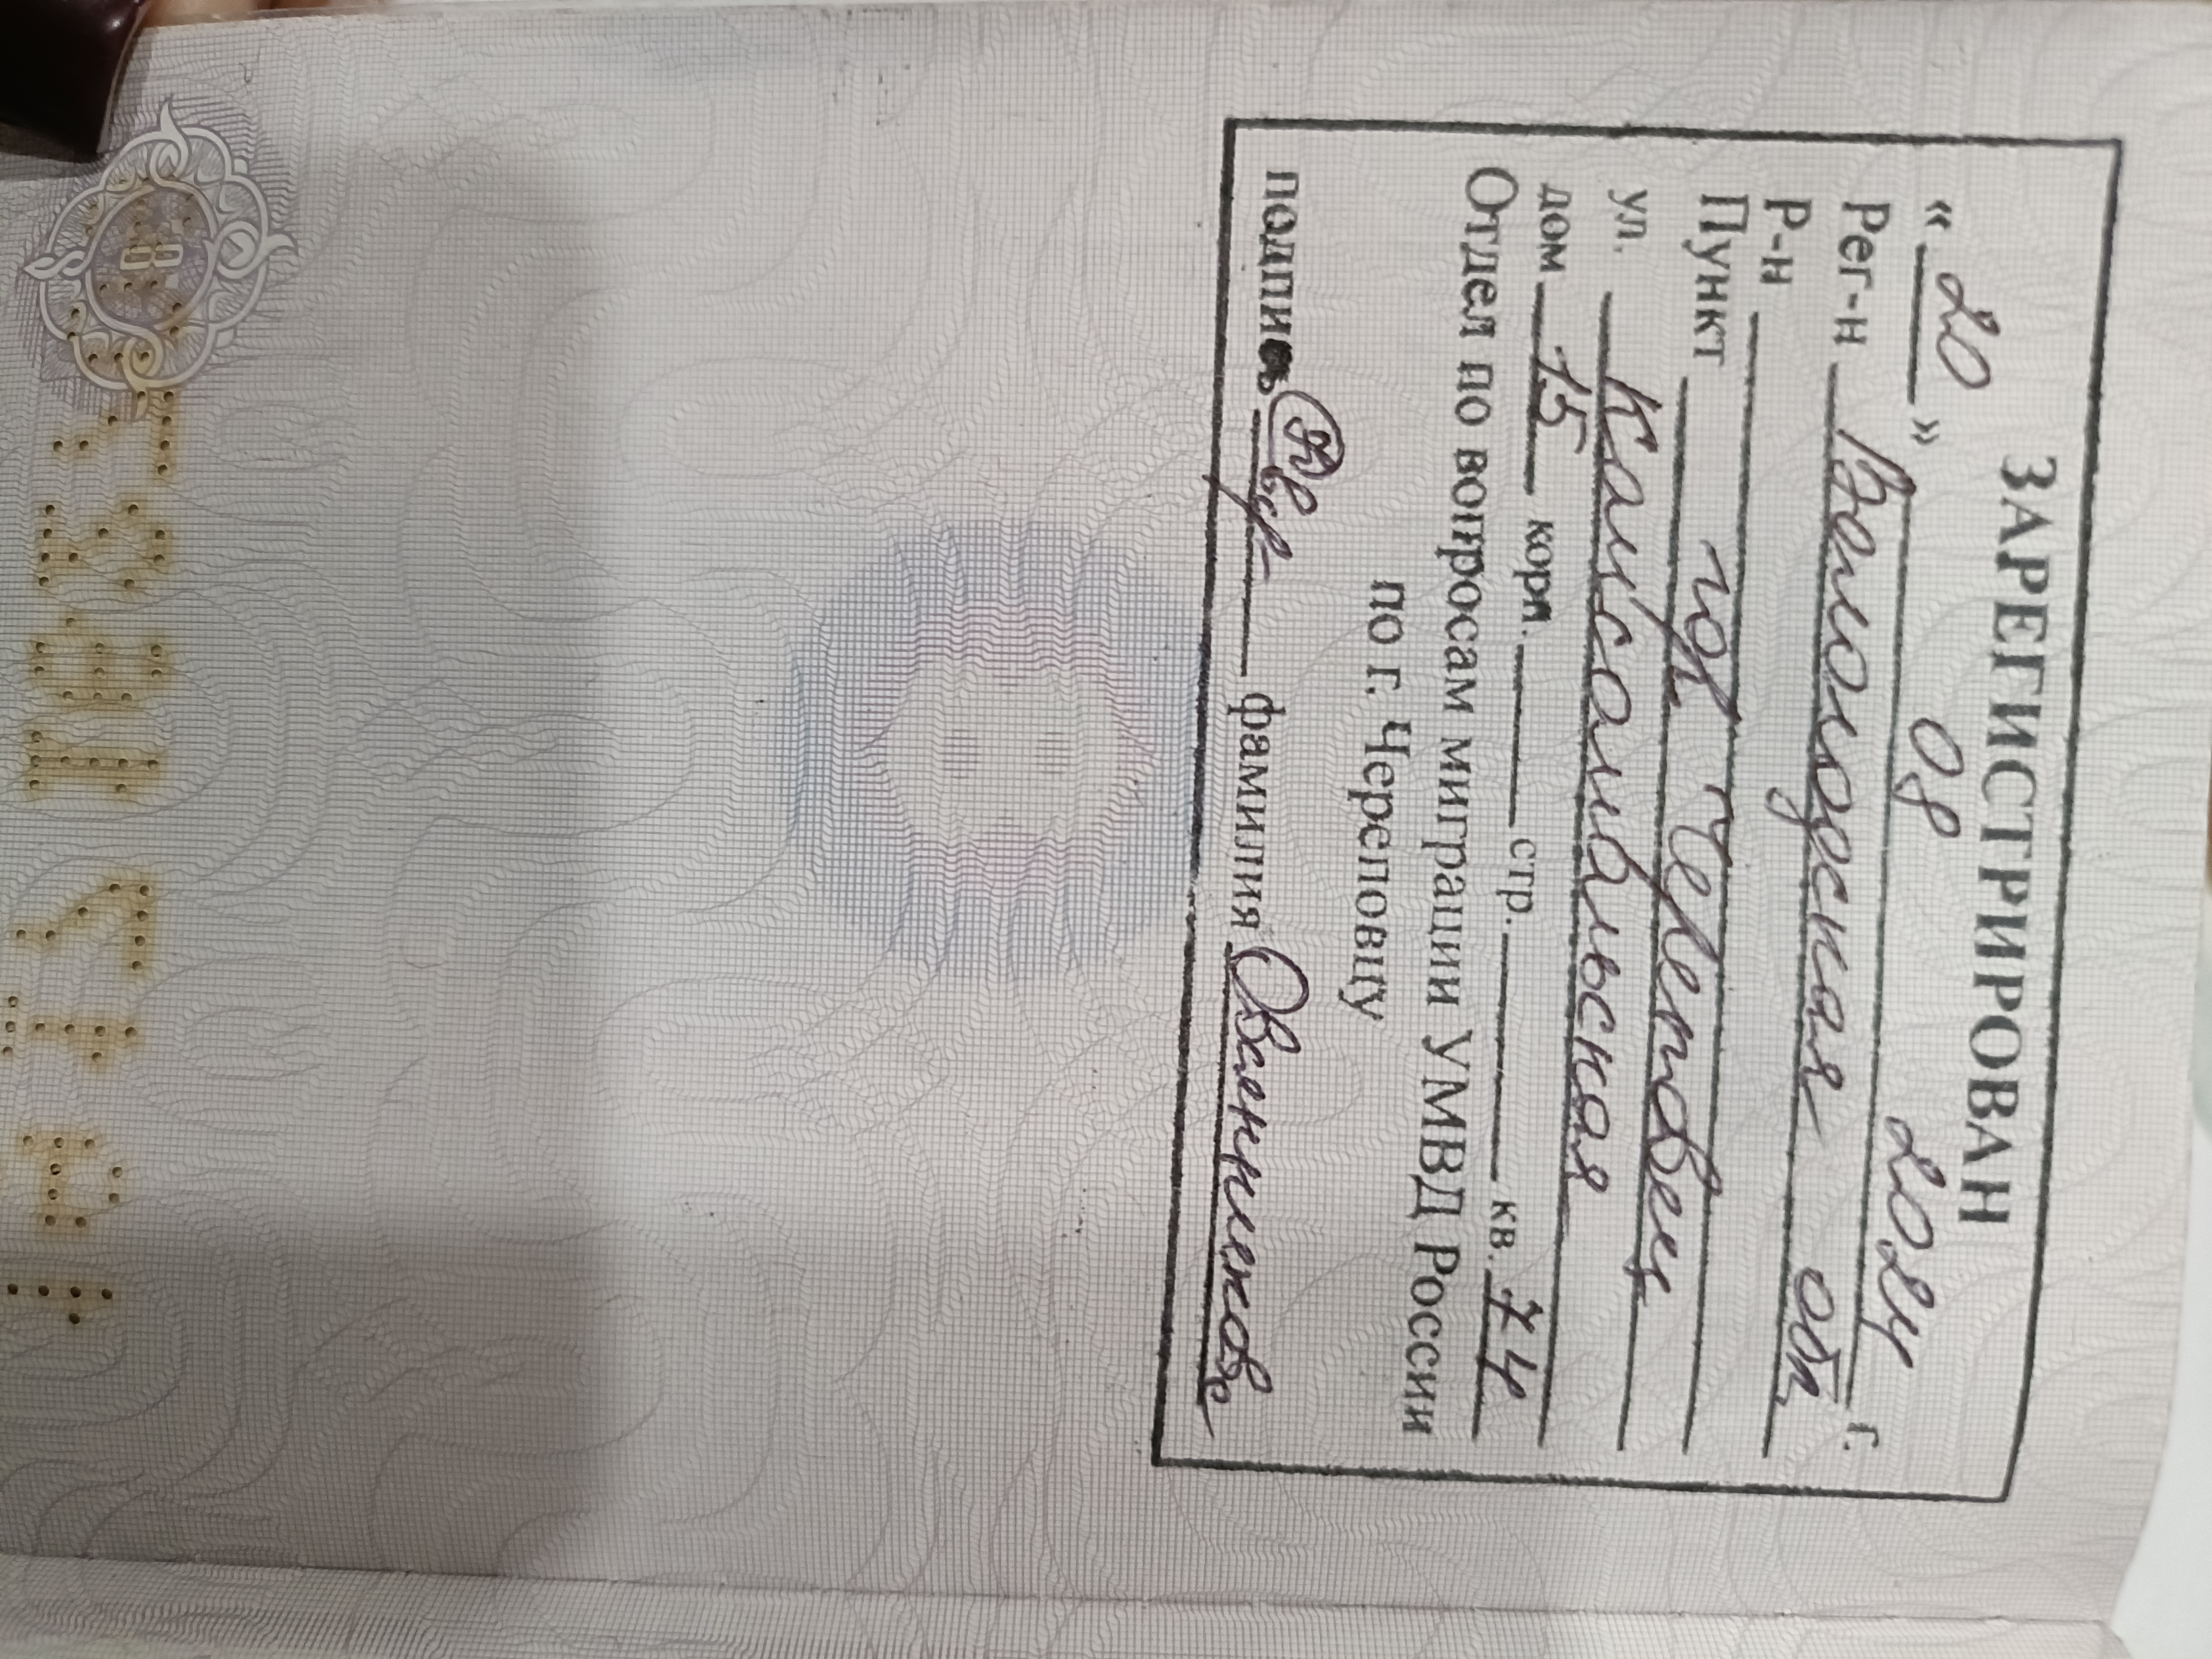 ЗАРЕГИСТРИРОВАН
« 20 » 08 2024 г.
Рег-н Вологодская обл
Р-н
Пункт гор Череповец
ул. Комсомольская
дом 15 корп. стр. кв. 74
Отдел по вопросам миграции УМВД России
по г. Череповцу
подпись фамилия Овсянникова
8